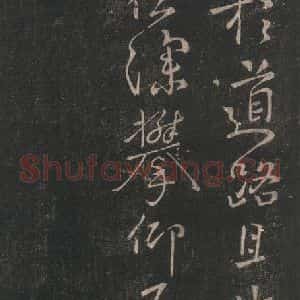 於道路且
深攀仰不
Shufawang.cn